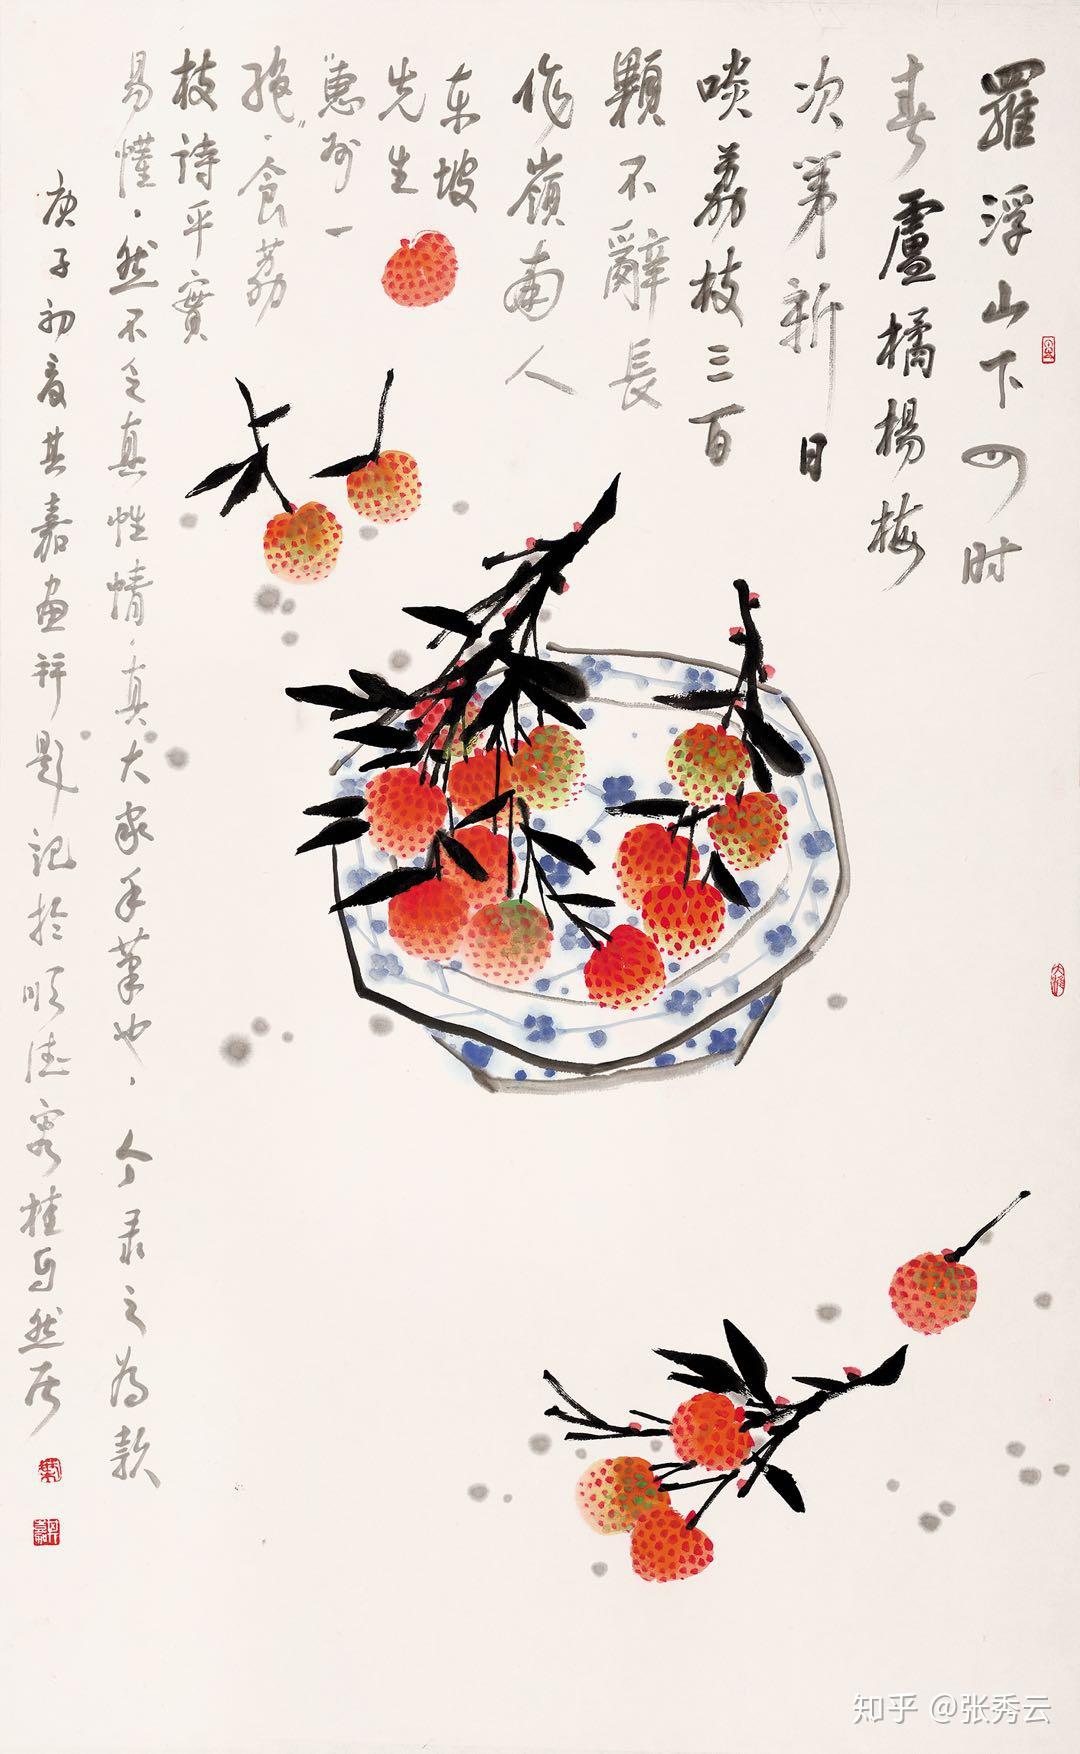 羅浮山下四时
春盧橘楊梅
次第新日
啖荔枝三百
顆不辭長
作嶺南人
东坡
先生
惠州一
絕·食荔
枝詩平實
易懂，然不乏真性情，真大家手筆也，今录之為款
庚子初夏其嘉画并题记於順德容桂自然居
知乎 @张秀云